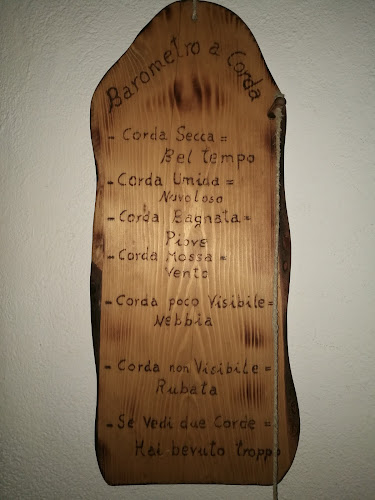 Barometro a Corda
- Corda Secca =
Bel tempo
- Corda Umida =
Nuvoloso
- Corda Bagnata =
Piove
- Corda Mossa =
Vento
- Corda poco Visibile =
Nebbia
- Corda non Visibile =
Rubata
- Se Vedi due Corde =
Hai bevuto troppo